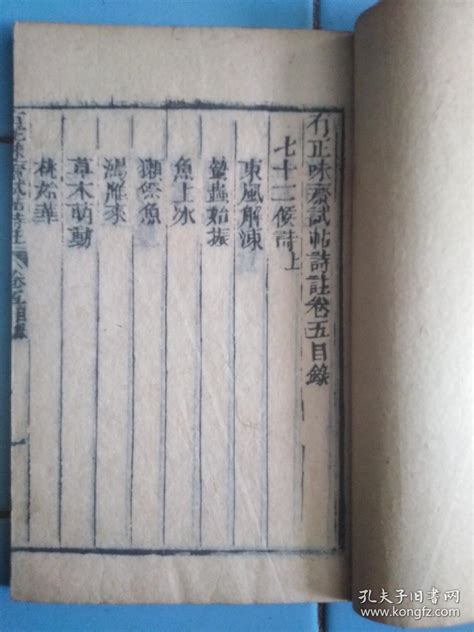 有正味齋試帖詩註卷五目錄
七十二候詩上
東風解凍
蟄蟲始振
魚上冰
獺祭魚
鴻雁來
草木萌動
桃始華
有正味齋試帖詩註 卷五目錄 一
孔夫子旧书网
www.kongfz.com